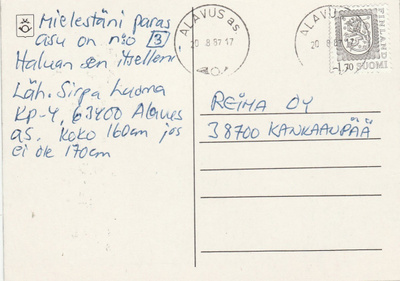 Mielestäni paras
asu on n:o 3
Haluan sen itselleni
Läh. Sirpa Luoma
KP-4, 63400 Alavus
as. Koko 160cm jos
ei ole 170cm
ALAVUS as
20.8.87.17
ALAVUS
20.8.87
FINLAND
1,70 SUOMI
REIMA OY
38700 KANKAANPÄÄ